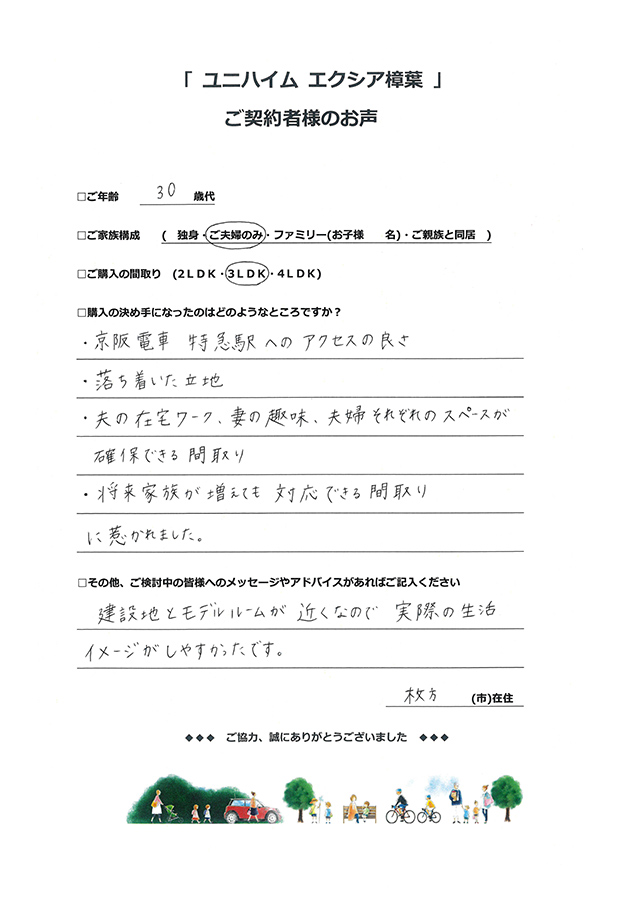 「 ユニハイム エクシア樟葉 」
ご契約者様のお声
□ご年齢 30 歳代
□ご家族構成 ( 独身・ご夫婦のみ・ファミリー(お子様 名)・ご親族と同居 )
□ご購入の間取り (2LDK・3LDK・4LDK)
□購入の決め手になったのはどのようなところですか？
・京阪電車 特急駅へのアクセスの良さ
・落ち着いた立地
・夫の在宅ワーク、妻の趣味、夫婦それぞれのスペースが
確保できる間取り
・将来家族が増えても対応できる間取り
に惹かれました。
□その他、ご検討中の皆様へのメッセージやアドバイスがあればご記入ください
建設地とモデルルームが近くなので 実際の生活
イメージがしやすかったです。
枚方 (市)在住
◆◆◆ ご協力、誠にありがとうございました ◆◆◆